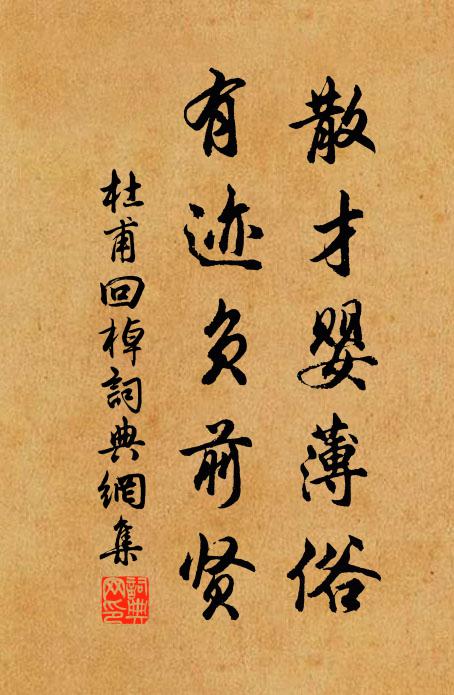 散才婴薄俗
有迹负前贤
杜甫回棹詞典網集
詞典
网印